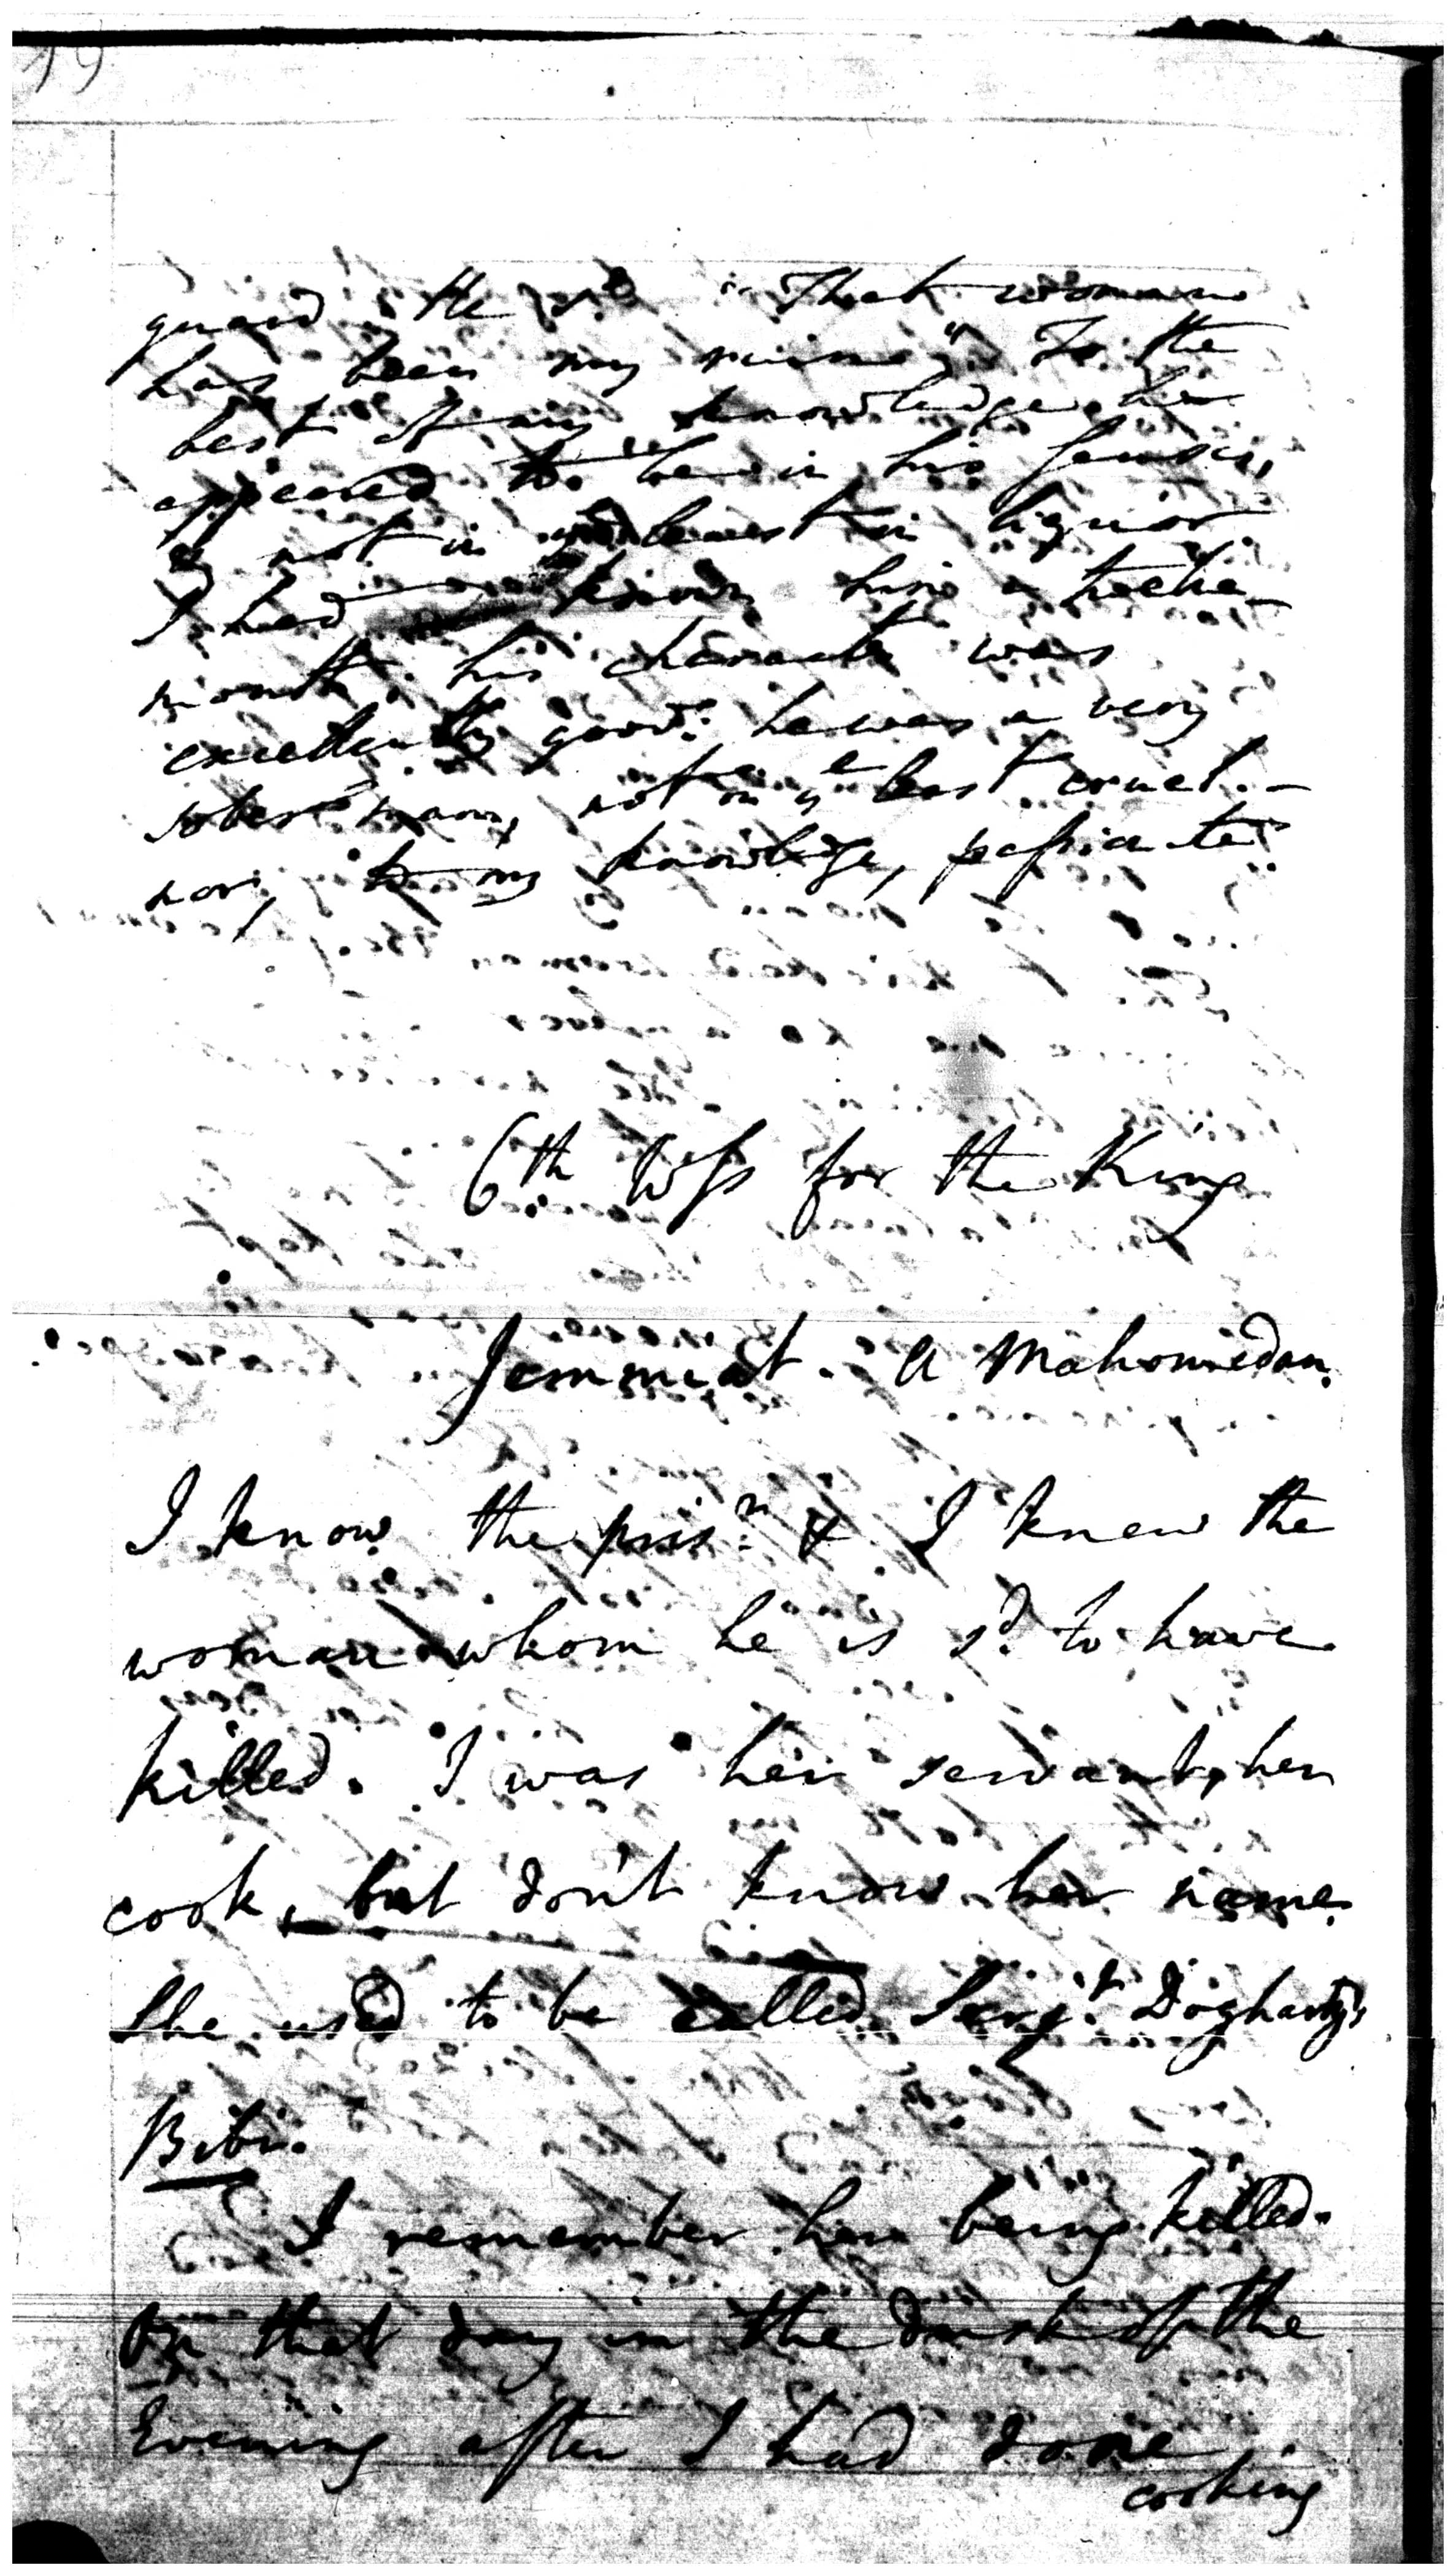 guard. He s.d "That woman
has been my ruine" To the
best of my knowledge he
appeared to be in his senses,
& not in y.e least in liquor
I had known him a twelve
month. his character was
excellently good: he was a very
sober man, not in y.e least cruel.
nor, to my knowledge, passionate
6th Wss for the King
Jemmiat. A Mahomedan.
I know the pris.n & I knew the
woman whom he is s.d to have
killed. I was her servant, her
cook, but don't know her name.
She used to be called Serj.t Dogharty's
Bibi.
I remember her being killed.
On that day in the dusk of the
Evening after I had done
cooking